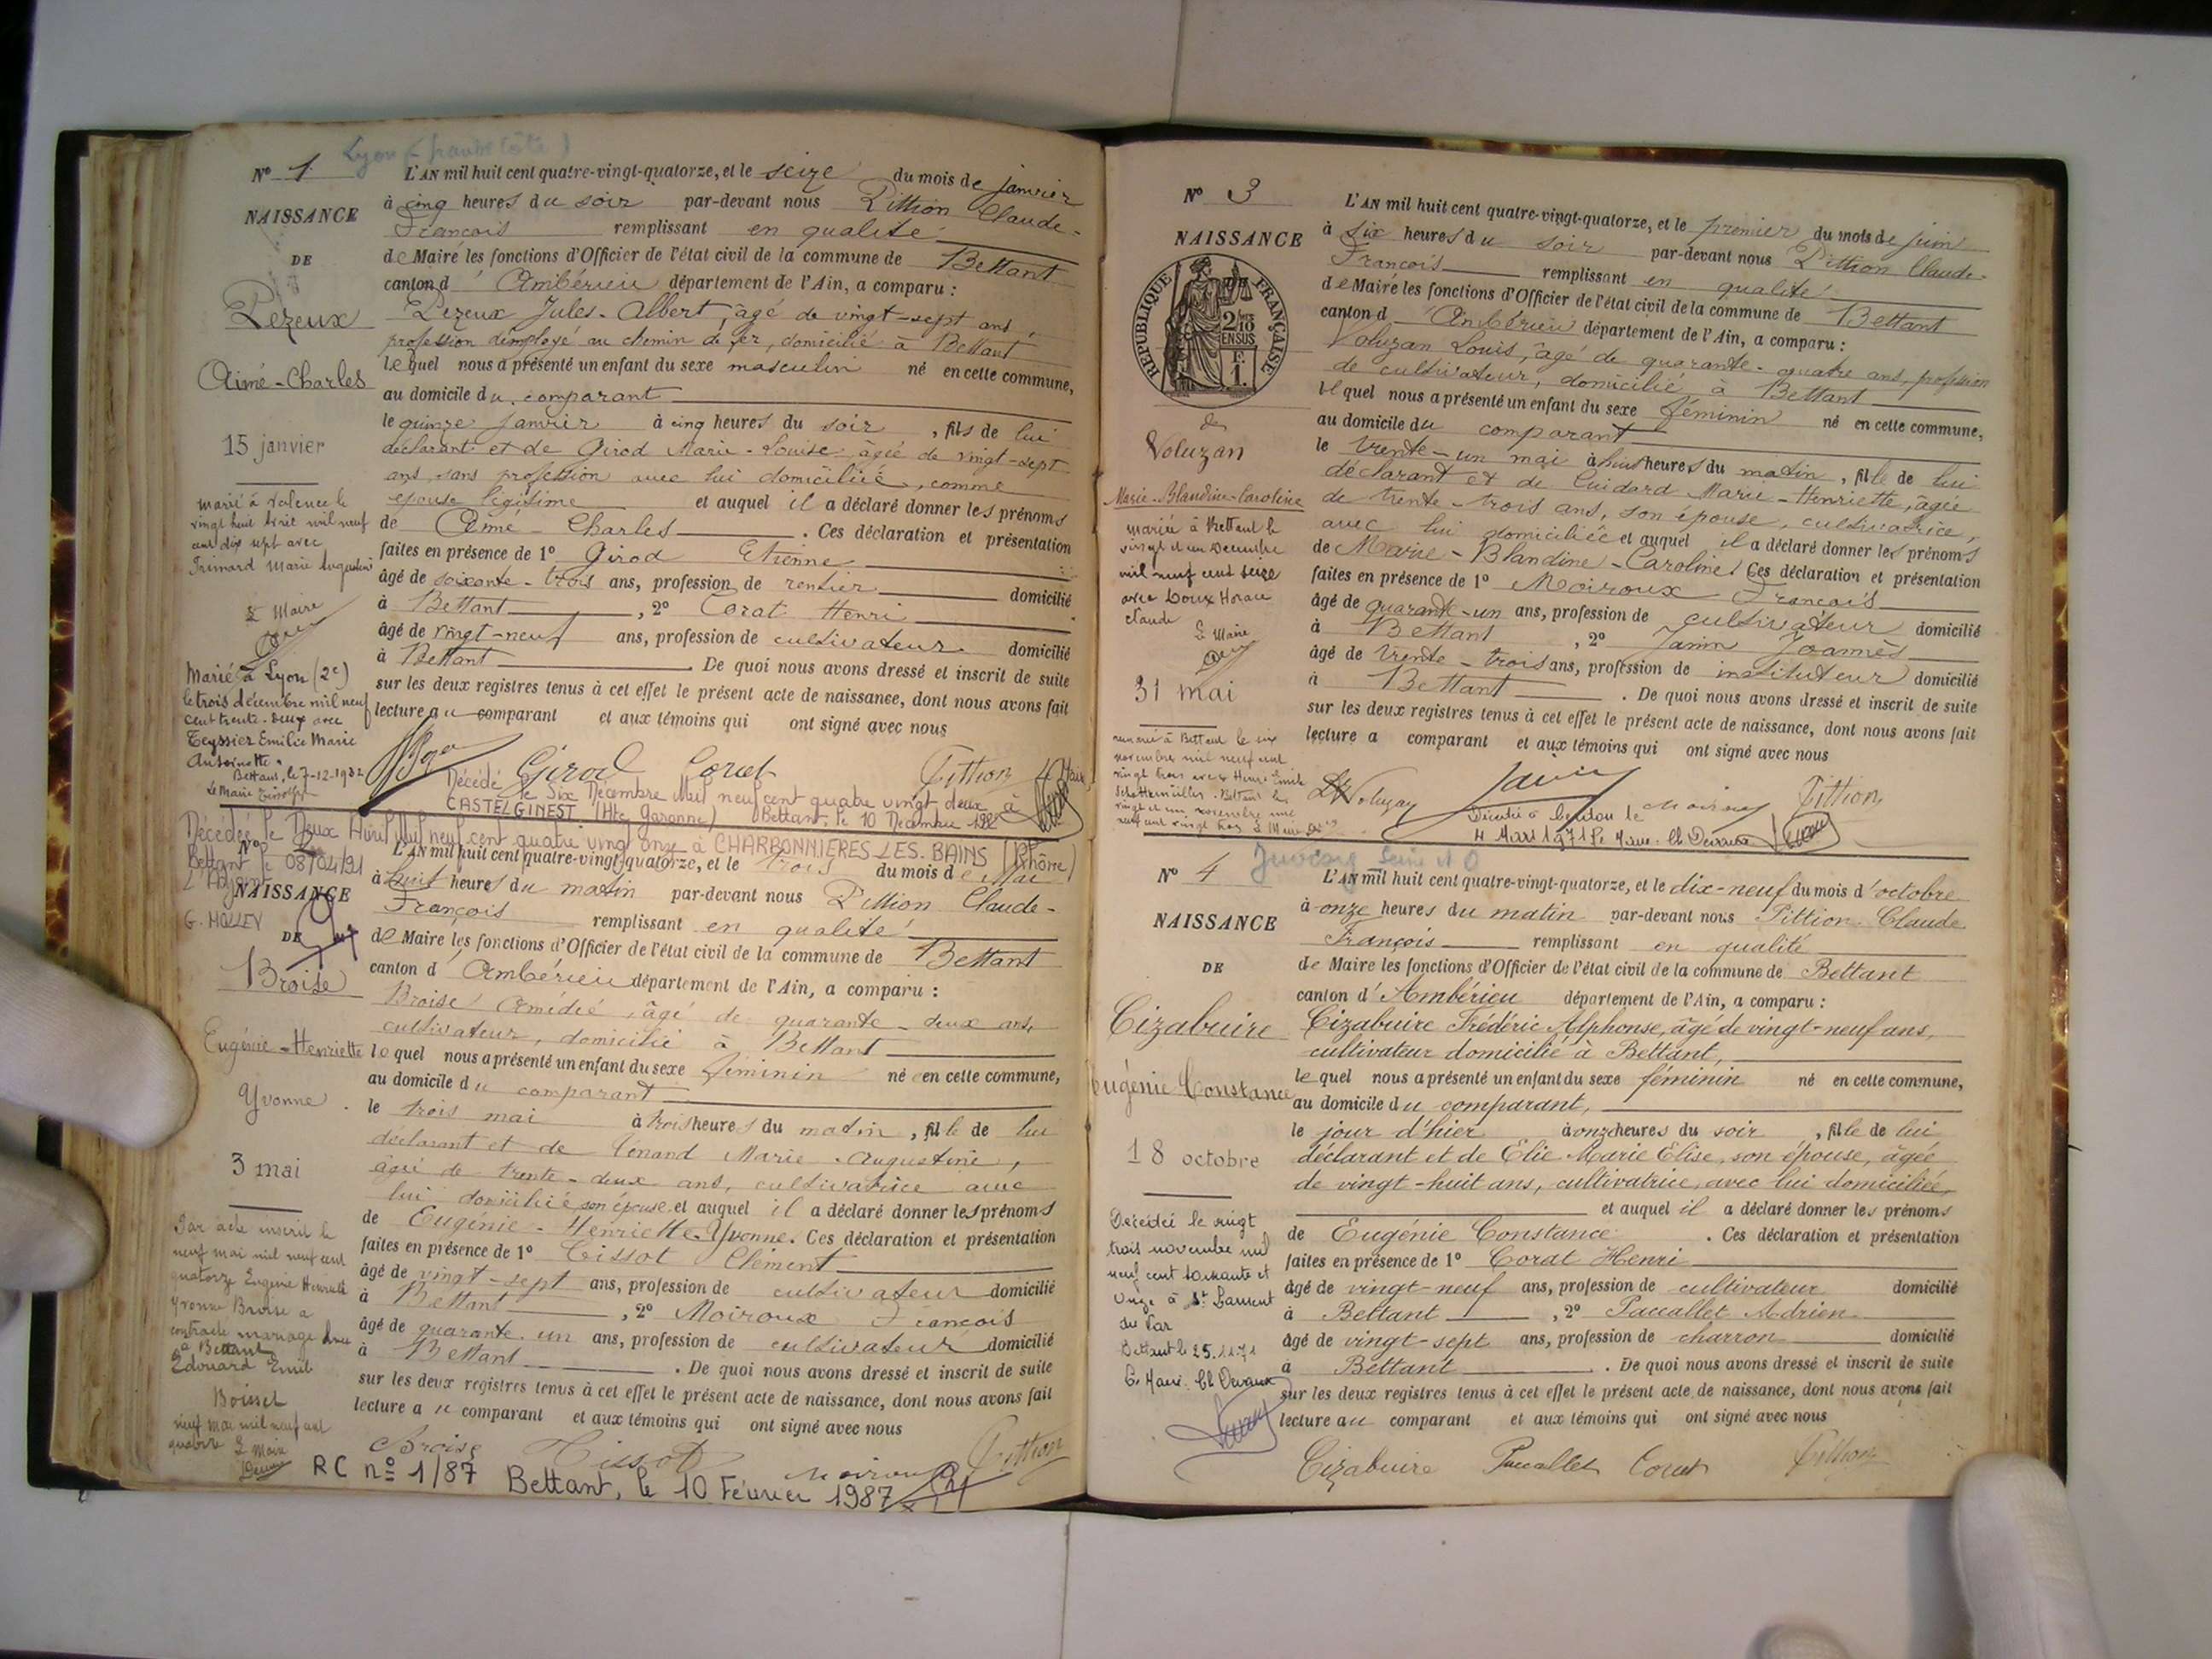 Lyon
N° 1
NAISSANCE
DE
Lezeux
Aimé-Charles
15 janvier
marié à Valence le
vingt huit avril mil neuf
cent dix sept avec
Marie Augustine
Le Maire
Marié à Lyon (2e)
le trois décembre mil neuf
cent trente-deux avec
Teyssier Emilie Marie
Antoinette.
Bettant, le 7-12-1932
Le Maire
L'AN mil huit cent quatre-vingt-quatorze, et le seize du mois de janvier
à cinq heures du soir par-devant nous Pittion Claude-
François remplissant en qualité
de Maire les fonctions d'Officier de l'état civil de la commune de Bettant
canton d'Ambérieu département de l'Ain, a comparu :
Lezeux Jules-Albert, âgé de vingt-sept ans,
profession d'employé au chemin de fer, domicilié à Bettant
lequel nous a présenté un enfant du sexe masculin né en cette commune,
au domicile du comparant
le quinze janvier à cinq heures du soir, fils de lui
déclarant et de Girod Marie-Louise âgée de vingt-sept
ans, sans profession avec lui domiciliée, comme
épouse légitime et auquel il a déclaré donner les prénoms
de Aimé-Charles. Ces déclaration et présentation
faites en présence de 1° Girod Etienne
âgé de soixante-trois ans, profession de rentier domicilié
à Bettant, 2° Corat Henri
âgé de vingt-neuf ans, profession de cultivateur domicilié
à Bettant. De quoi nous avons dressé et inscrit de suite
sur les deux registres tenus à cet effet le présent acte de naissance, dont nous avons fait
lecture au comparant et aux témoins qui ont signé avec nous
Girod Corat Pittion
Décédé le Six Décembre Mil neuf cent quatre vingt deux à
CASTELGINEST (Hte Garonne) Bettant, le 10 Décembre 1982
Décédée le Deux Avril Mil neuf cent quatre vingt onze à CHARBONNIERES-LES-BAINS (Rhône)
Bettant le 08/04/91
L'Adjoint
G. HOLLEY
N° 2
NAISSANCE
DE
Broise
Eugénie-Henriette
Yvonne
3 mai
Par acte inscrit le
neuf mai mil neuf cent
quatorze Eugénie Henriette
Yvonne Broise a
contracté mariage avec
à Bettant
Edouard Emile
Boisset
neuf mai mil neuf cent
quatorze Le Maire
L'AN mil huit cent quatre-vingt-quatorze, et le trois du mois de mai
à huit heures du matin par-devant nous Pittion Claude-
François remplissant en qualité
de Maire les fonctions d'Officier de l'état civil de la commune de Bettant
canton d'Ambérieu département de l'Ain, a comparu :
Broise Amédée, âgé de quarante-deux ans,
cultivateur, domicilié à Bettant
lequel nous a présenté un enfant du sexe féminin né en cette commune,
au domicile du comparant
le trois mai à trois heures du matin, fille de lui
déclarant et de Marie-Augustine,
âgée de trente-deux ans, cultivatrice avec
lui domiciliée, son épouse et auquel il a déclaré donner les prénoms
de Eugénie-Henriette-Yvonne. Ces déclaration et présentation
faites en présence de 1° Tissot Clément
âgé de vingt-sept ans, profession de cultivateur domicilié
à Bettant, 2° Moiroux François
âgé de quarante-un ans, profession de cultivateur domicilié
à Bettant. De quoi nous avons dressé et inscrit de suite
sur les deux registres tenus à cet effet le présent acte de naissance, dont nous avons fait
lecture au comparant et aux témoins qui ont signé avec nous
Broise Tissot Moiroux Pittion
RC n° 1/87 Bettant, le 10 Février 1987
N° 3
NAISSANCE
RÉPUBLIQUE FRANÇAISE
2/10 EN SUS
F. 1.
de
Voluzan
Marie-Blandine-Caroline
mariée à Bettant le
vingt et un Decembre
mil neuf cent seize
avec Doux Horace
Claude
Le Maire
31 mai
remariée à Bettant le six
novembre mil neuf cent
vingt trois avec Henri Emile
Bettant le
vingt et un novembre mil
neuf cent vingt trois Le Maire
L'AN mil huit cent quatre-vingt-quatorze, et le premier du mois de juin
à six heures du soir par-devant nous Pittion Claude-
François remplissant en qualité
de Maire les fonctions d'Officier de l'état civil de la commune de Bettant
canton d'Ambérieu département de l'Ain, a comparu :
Voluzan Louis, âgé de quarante-quatre ans, profession
de cultivateur, domicilié à Bettant
lequel nous a présenté un enfant du sexe féminin né en cette commune,
au domicile du comparant
le trente-un mai à huit heures du matin, fille de lui
déclarant et de Cuidard Marie-Henriette, âgée
de trente-trois ans, son épouse, cultivatrice,
avec lui domiciliée et auquel il a déclaré donner les prénoms
de Marie-Blandine-Caroline. Ces déclaration et présentation
faites en présence de 1° Moiroux François
âgé de quarante-un ans, profession de cultivateur domicilié
à Bettant, 2° Janin Joannès
âgé de trente-trois ans, profession de instituteur domicilié
à Bettant. De quoi nous avons dressé et inscrit de suite
sur les deux registres tenus à cet effet le présent acte de naissance, dont nous avons fait
lecture a comparant et aux témoins qui ont signé avec nous
Voluzan Janin Moiroux Pittion
Décédée à le
4 Mars 1971 Le Maire. Cl Devaux
N° 4
NAISSANCE
DE
Cizabuire
Eugénie Constance
18 octobre
Décédée le vingt
trois novembre mil
neuf cent soixante et
onze à St Laurent
du Var
Bettant le 25.11.71
Le Maire. Cl Devaux
Juvisy Seine et O
L'AN mil huit cent quatre-vingt-quatorze, et le dix-neuf du mois d'octobre
à onze heures du matin par-devant nous Pittion Claude
François remplissant en qualité
de Maire les fonctions d'Officier de l'état civil de la commune de Bettant
canton d'Ambérieu département de l'Ain, a comparu :
Cizabuire Frédéric Alphonse, âgé de vingt-neuf ans,
cultivateur domicilié à Bettant,
lequel nous a présenté un enfant du sexe féminin né en cette commune,
au domicile du comparant,
le jour d'hier à onze heures du soir, fille de lui
déclarant et de Elie Marie Elise, son épouse, âgée
de vingt-huit ans, cultivatrice, avec lui domiciliée,
et auquel il a déclaré donner les prénoms
de Eugénie Constance. Ces déclaration et présentation
faites en présence de 1° Corat Henri
âgé de vingt-neuf ans, profession de cultivateur domicilié
à Bettant, 2° Paccallet Adrien
âgé de vingt-sept ans, profession de charron domicilié
à Bettant. De quoi nous avons dressé et inscrit de suite
sur les deux registres tenus à cet effet le présent acte de naissance, dont nous avons fait
lecture au comparant et aux témoins qui ont signé avec nous
Cizabuire Paccallet Corat Pittion